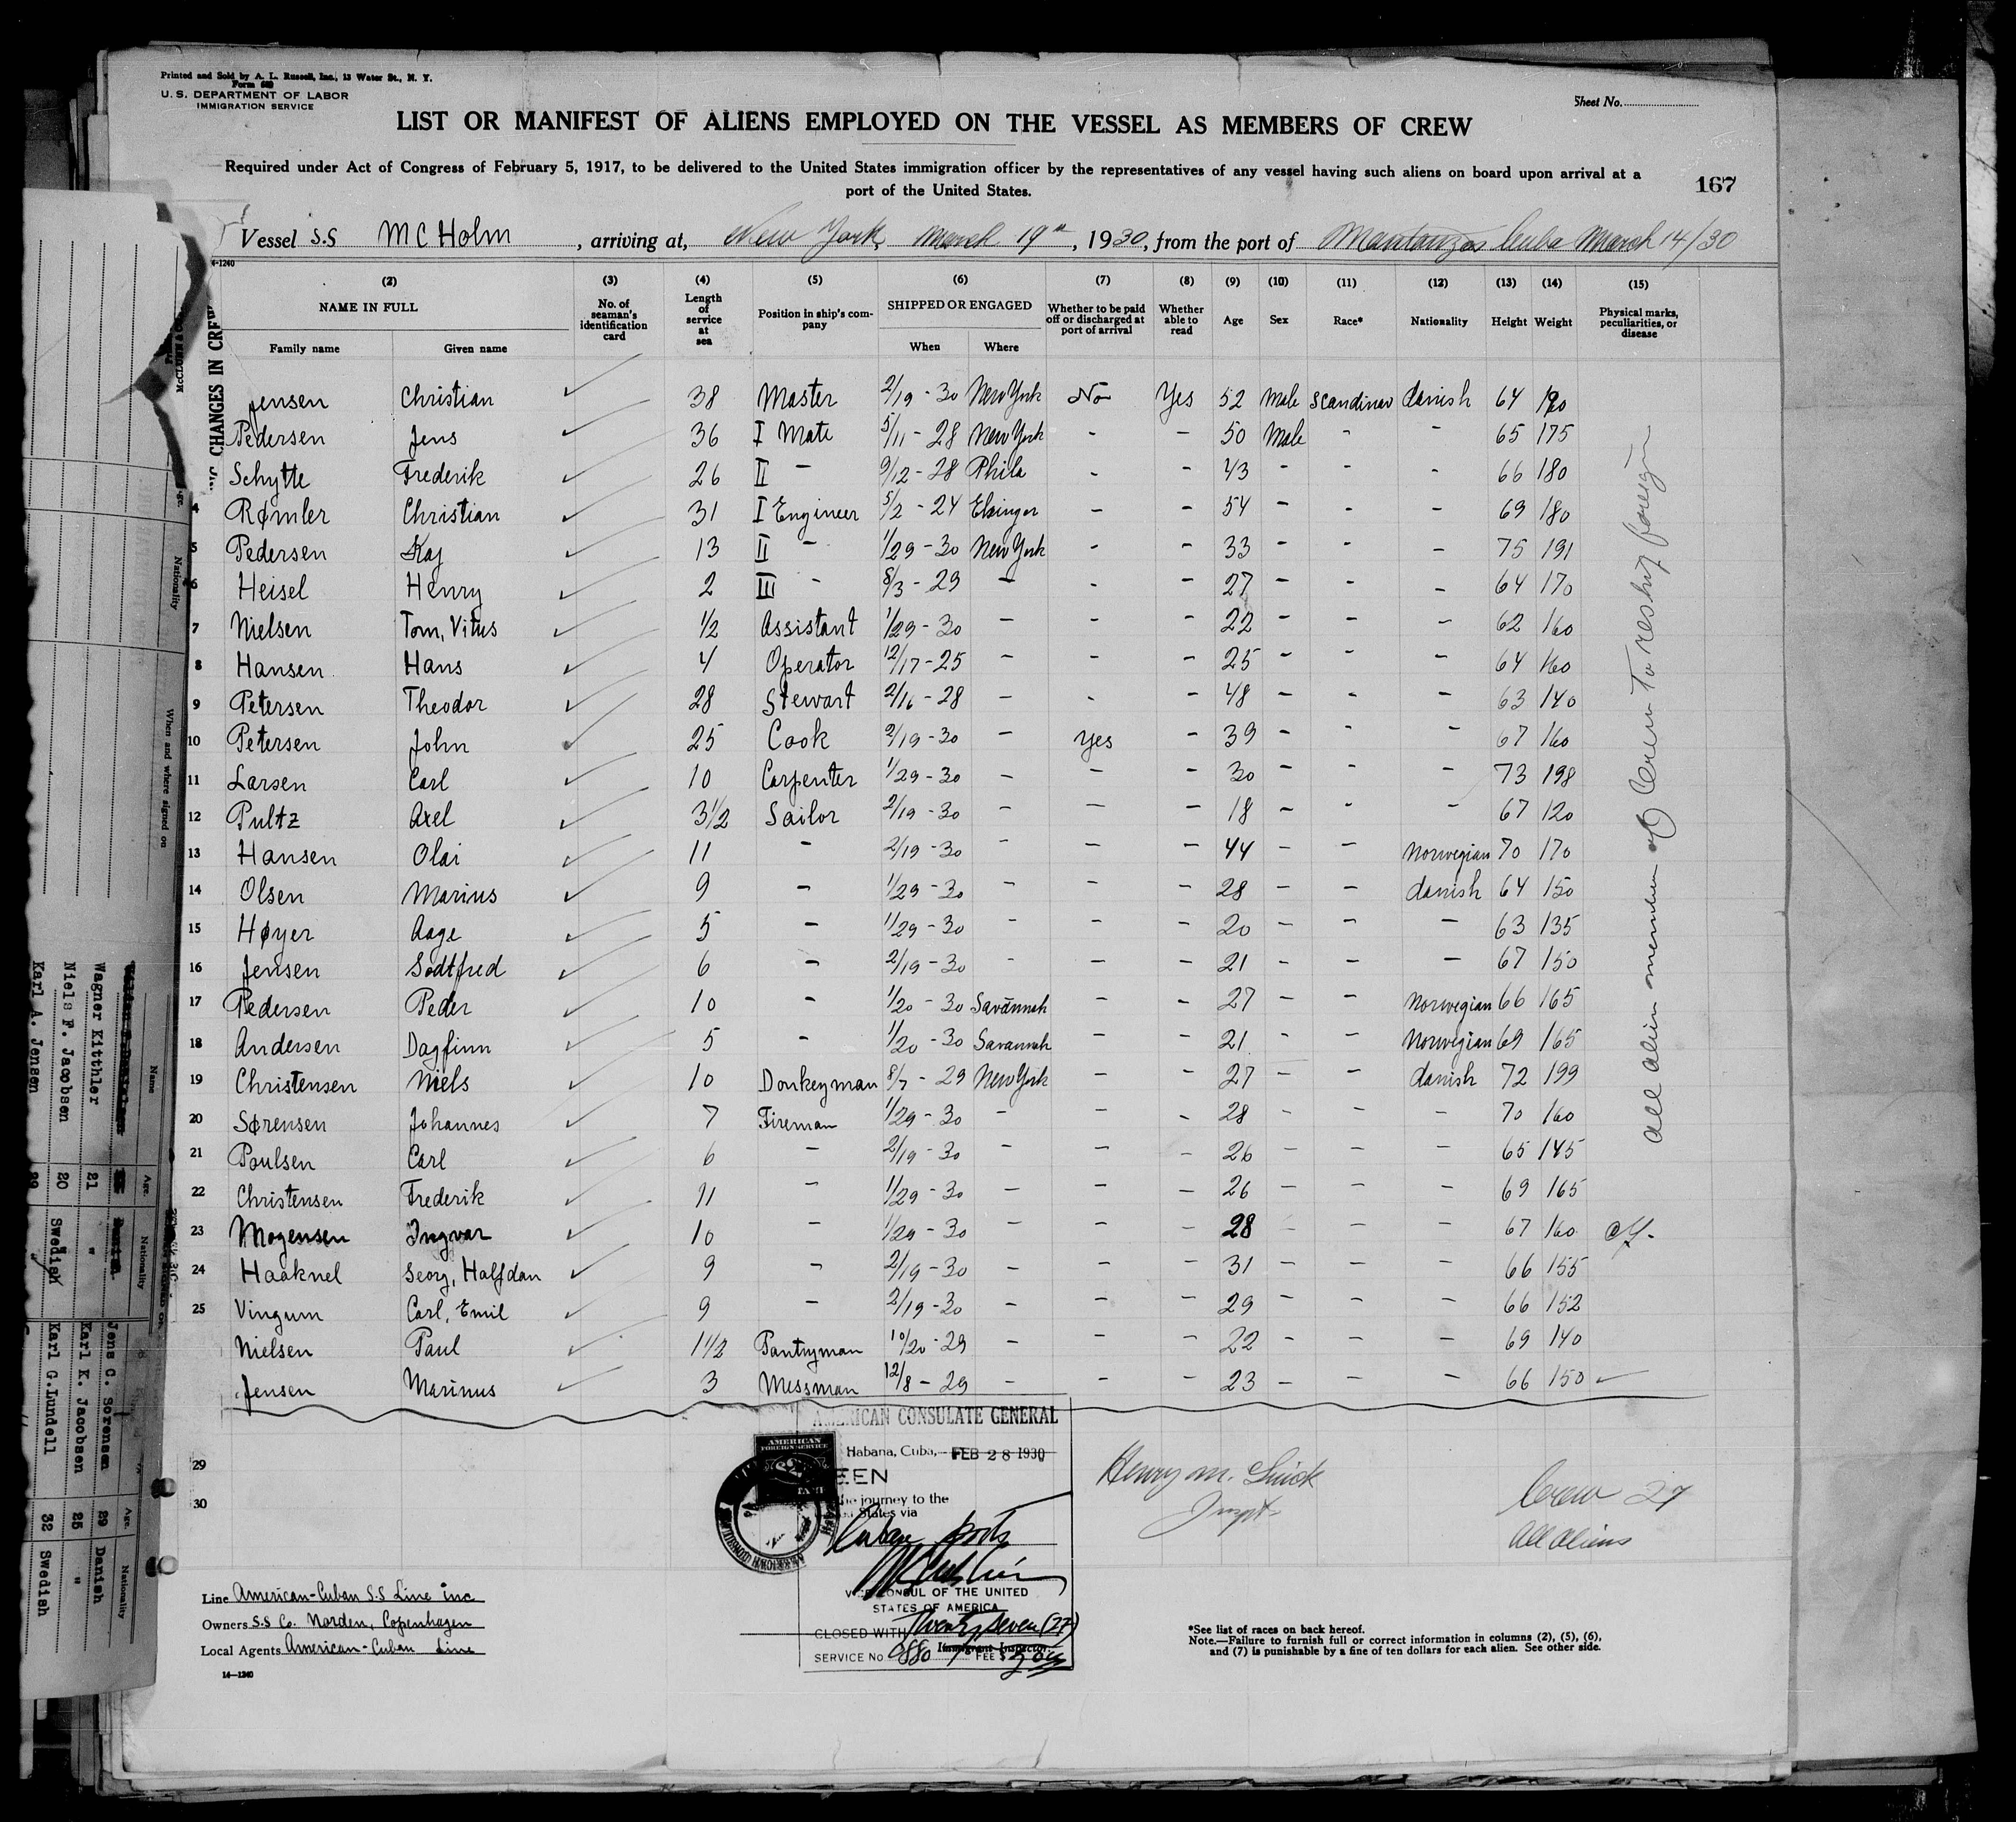 Printed and Sold by A. L. Russell, Inc., 13 Water St., N. Y.
Form 689
U. S. DEPARTMENT OF LABOR
IMMIGRATION SERVICE
Sheet No.
LIST OR MANIFEST OF ALIENS EMPLOYED ON THE VESSEL AS MEMBERS OF CREW
Required under Act of Congress of February 5, 1917, to be delivered to the United States immigration officer by the representatives of any vessel having such aliens on board upon arrival at a
port of the United States.
167
Vessel S.S MC Holm, arriving at, New York, March 19th, 1930, from the port of Mantanzas Cuba March 14/30
4-1240
(2) NAME IN FULL Family name Given name (3) No. of seaman's identification card (4) Length of service at sea (5) Position in ship's company (6) SHIPPED OR ENGAGED When Where (7) Whether to be paid off or discharged at port of arrival (8) Whether able to read (9) Age (10) Sex (11) Race* (12) Nationality (13) Height (14) Weight (15) Physical marks, peculiarities, or disease
Jensen Christian 38 Master 2/19 - 30 New York No Yes 52 Male Scandinav danish 64 190
Pedersen Jens 36 I Mate 5/11 - 28 New York - - 50 Male - - 65 175
Schytte Frederik 26 II - 9/12 - 28 Phila - - 43 - - - 66 180
4 Rømler Christian 31 I Engineer 5/2 - 24 Elsinger - - 54 - - - 69 180
5 Pedersen Kaj 13 II - 1/29 - 30 New York - - 33 - - - 75 191
6 Heisel Henry 2 III - 8/3 - 29 - - - 27 - - - 64 170
7 Nielsen Tom, Vitus 1/2 Assistant 1/29 - 30 - - - 22 - - - 62 160
8 Hansen Hans 4 Operator 12/17 - 25 - - - 25 - - - 64 160
9 Petersen Theodor 28 Stewart 2/16 - 28 - - - 48 - - - 63 140
10 Petersen John 25 Cook 2/19 - 30 - Yes - 39 - - - 67 160
11 Larsen Carl 10 Carpenter 1/29 - 30 - - - 30 - - - 73 198
12 Pultz Axel 3 1/2 Sailor 2/19 - 30 - - - 18 - - - 67 120
13 Hansen Olai 11 - 2/19 - 30 - - - 44 - - Norwegian 70 170
14 Olsen Marius 9 - 1/29 - 30 - - - 28 - - danish 64 150
15 Høyer Aage 5 - 1/29 - 30 - - - 20 - - - 63 135
16 Jensen Godtfred 6 - 2/19 - 30 - - - 21 - - - 67 150
17 Pedersen Peder 10 - 1/20 - 30 Savannah - - 27 - - Norwegian 66 165
18 Andersen Dagfinn 5 - 1/20 - 30 Savannah - - 21 - - Norwegian 69 165
19 Christensen Niels 10 Donkeyman 8/7 - 29 New York - - 27 - - danish 72 199
20 Sørensen Johannes 7 Fireman 1/29 - 30 - - - 28 - - - 70 160
21 Poulsen Carl 6 - 2/19 - 30 - - - 26 - - - 65 145
22 Christensen Frederik 11 - 1/29 - 30 - - - 26 - - - 69 165
23 Mogensen Ingvar 10 - 1/29 - 30 - - - 28 - - - 67 160
24 Haaknel Georg, Halfdan 9 - 2/19 - 30 - - - 31 - - - 66 155
25 Vingum Carl, Emil 9 - 2/19 - 30 - - - 29 - - - 66 152
Nielsen Paul 1 1/2 Pantryman 10/20 - 29 - - - 22 - - - 69 140
Jensen Marinus 3 Messman 12/8 - 29 - - - 23 - - - 66 150
29
30
All alien members of Crew to reship foreign
AMERICAN CONSULATE GENERAL
Habana, Cuba, FEB 28 1930
AMERICAN
FOREIGN SERVICE
EEN
the journey to the
States via
Cuban ports
VICE CONSUL OF THE UNITED
STATES OF AMERICA
CLOSED WITH Twenty seven (27)
Immigrant Inspector.
SERVICE No 6880 FEE $
Henry M.
Inspt
Crew 27
All aliens
Line American-Cuban S.S Line inc
Owners S.S Co. Norden, Copenhagen
Local Agents American-Cuban Line
14-1240
*See list of races on back hereof.
Note.—Failure to furnish full or correct information in columns (2), (5), (6),
and (7) is punishable by a fine of ten dollars for each alien. See other side.
CHANGES IN CREW
Nationality
When and where signed on
Name Age. Nationality
Wagner Kitthler 21 "
Niels F. Jacobsen 20 Swedish
Karl A. Jensen
Jens C. Sorensen 29 Danish
Karl K. Jacobsen 25 "
Karl G. Lundell 32 Swedish